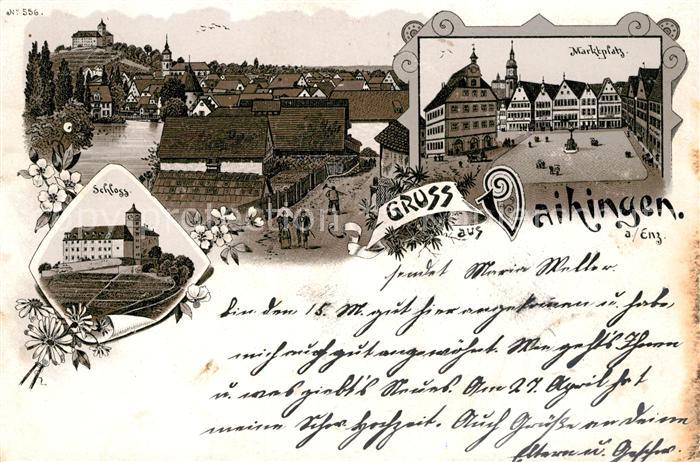 No 556.
Marktplatz.
Schloss.
GRUSS
aus
Vaihingen.
a/Enz.
sendet Maria Weller.
Bin den 15. M. gut hier angekommen u. habe
mich auch gut angewöhnt. Wie geht's Ihnen
u. was giebt's Neues. Am 27. April hat
meine Schw. Hochzeit. Auch Grüße an deine
Eltern u. Geschw.